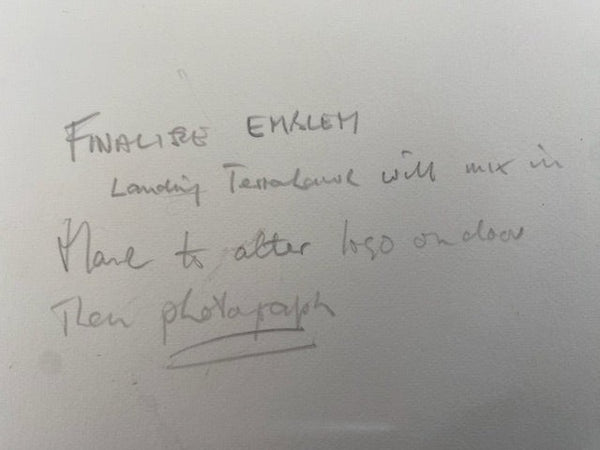 FINALISE EMBLEM
Landing Terrahawk will mix in
Have to alter logo on door
Then photograph